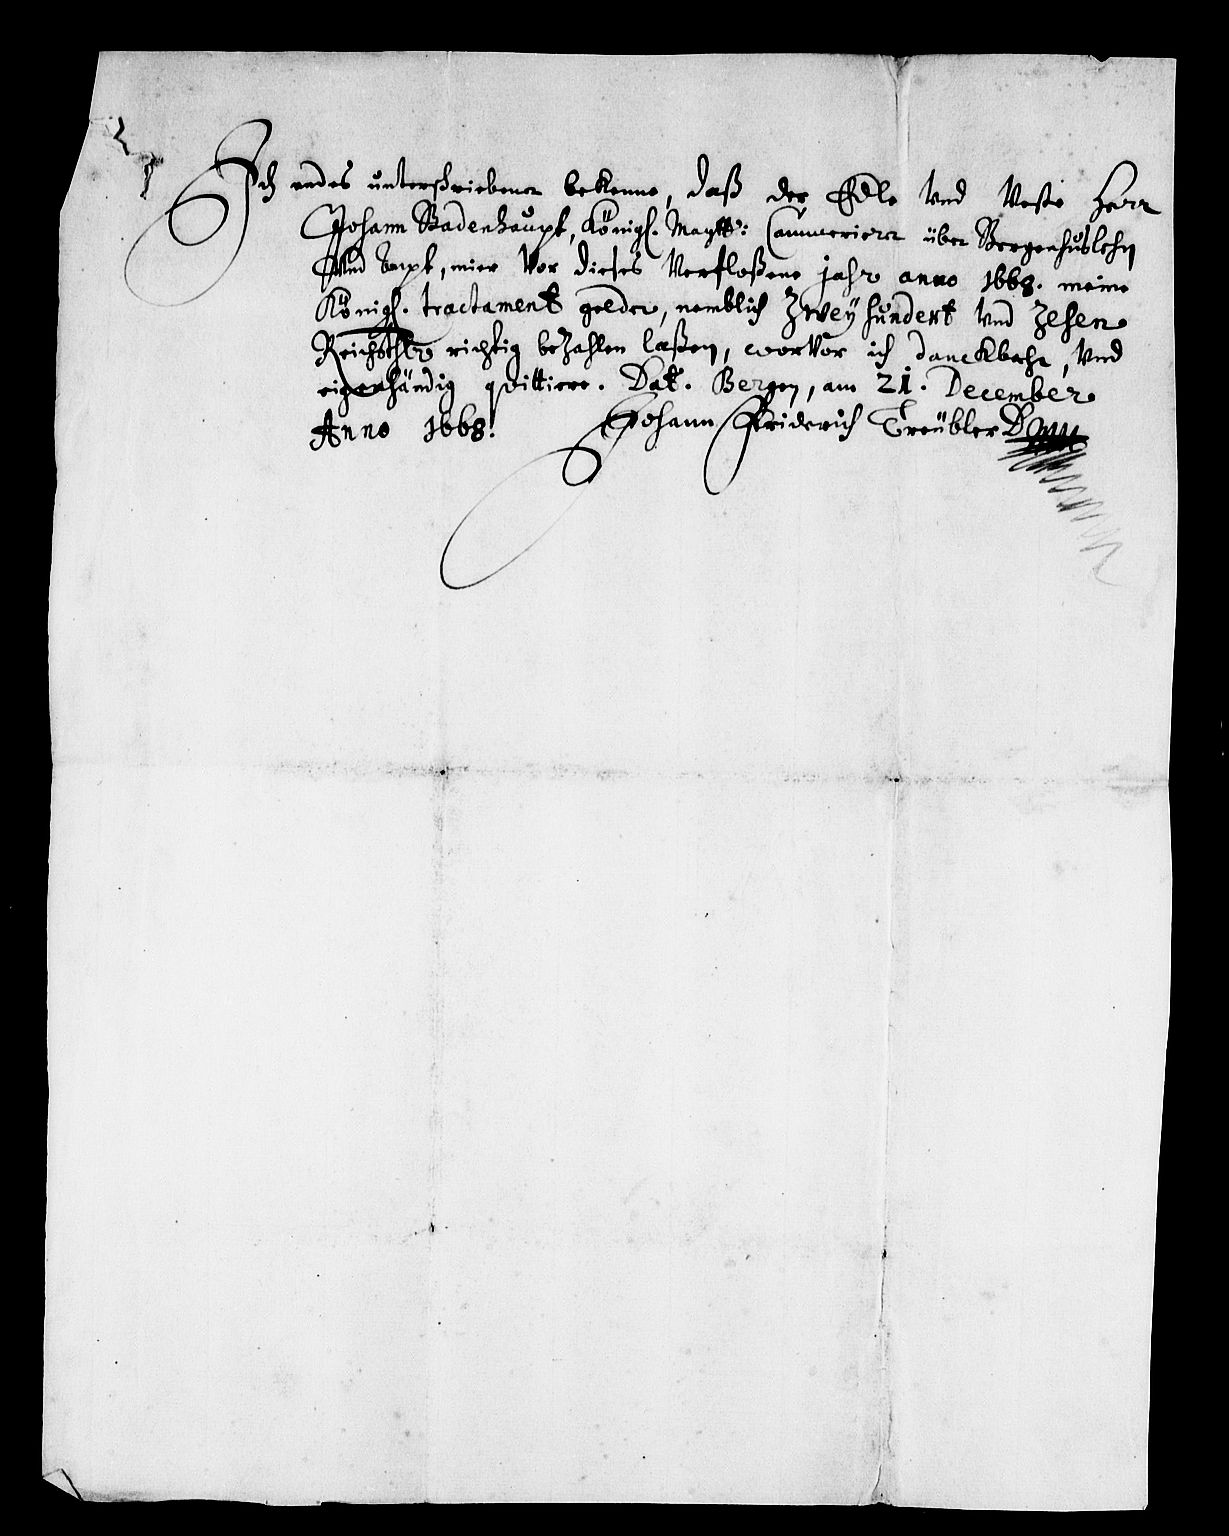 Ich endes unterschriebener bekenne, daß der Edle vnd Veste Herr
Johann Badenhaupt, Königl. Maytt: Cammerierer über Bergenhüslehn
vnd Ampt, mier vor dieses verfloßene jahr anno 1668. meine
Königl. tractament gelder, nemblich Zweyhundert vnd Zehen
Reichsthlr richtig beZahlen laßen, worvor ich danckbahr, vnd
eigenhändig qvittiere. Dat. Bergen, am 21. December
Anno 1668. Johann Friderich Treübler